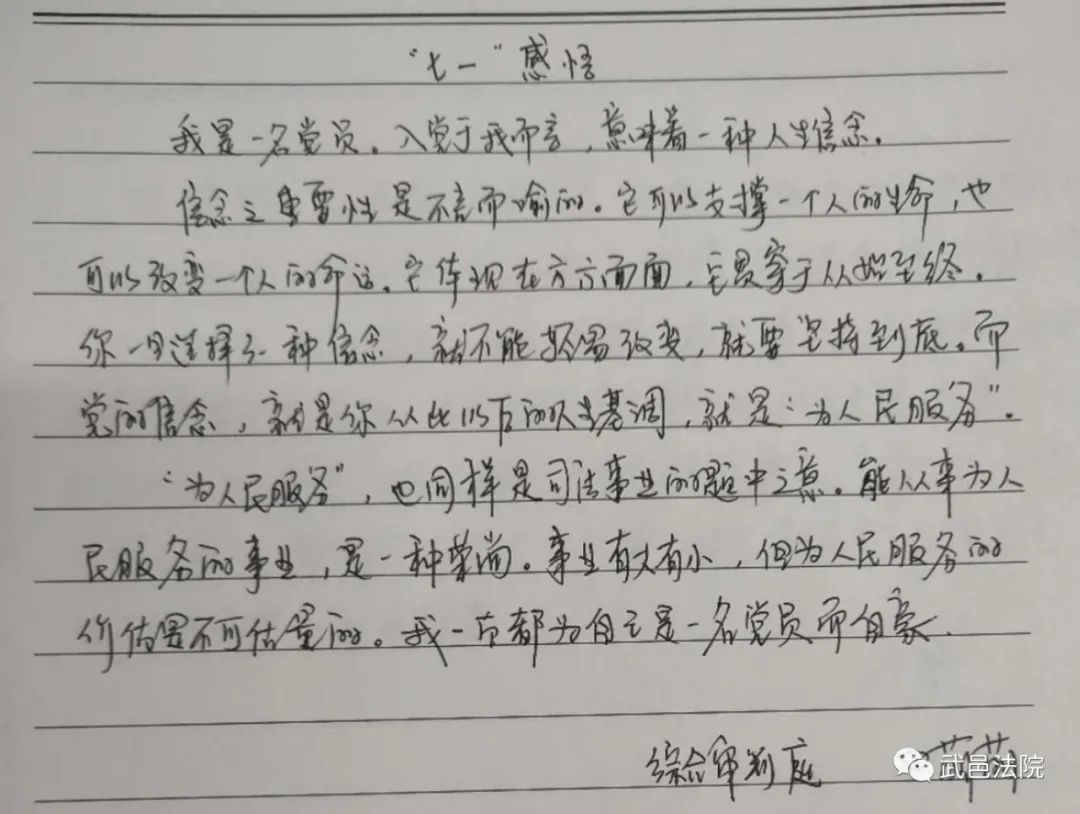 “七一”感悟
我是一名党员。入党于我而言，意味着一种人生信念。
信念之重要性是不言而喻的。它可以支撑一个人的生命，也
可以改变一个人的命运。它体现在方方面面，它贯穿于从始至终。
你一旦选择了一种信念，就不能轻易改变，就要坚持到底。而
党的信念，就是你从此以后的人生基调，就是“为人民服务”。
“为人民服务”，也同样是司法事业的题中之意。能从事为人
民服务的事业，是一种荣尚。事业有大有小，但为人民服务的
价值是不可估量的。我一直都为自己是一名党员而自豪。
综合审判庭
武邑法院